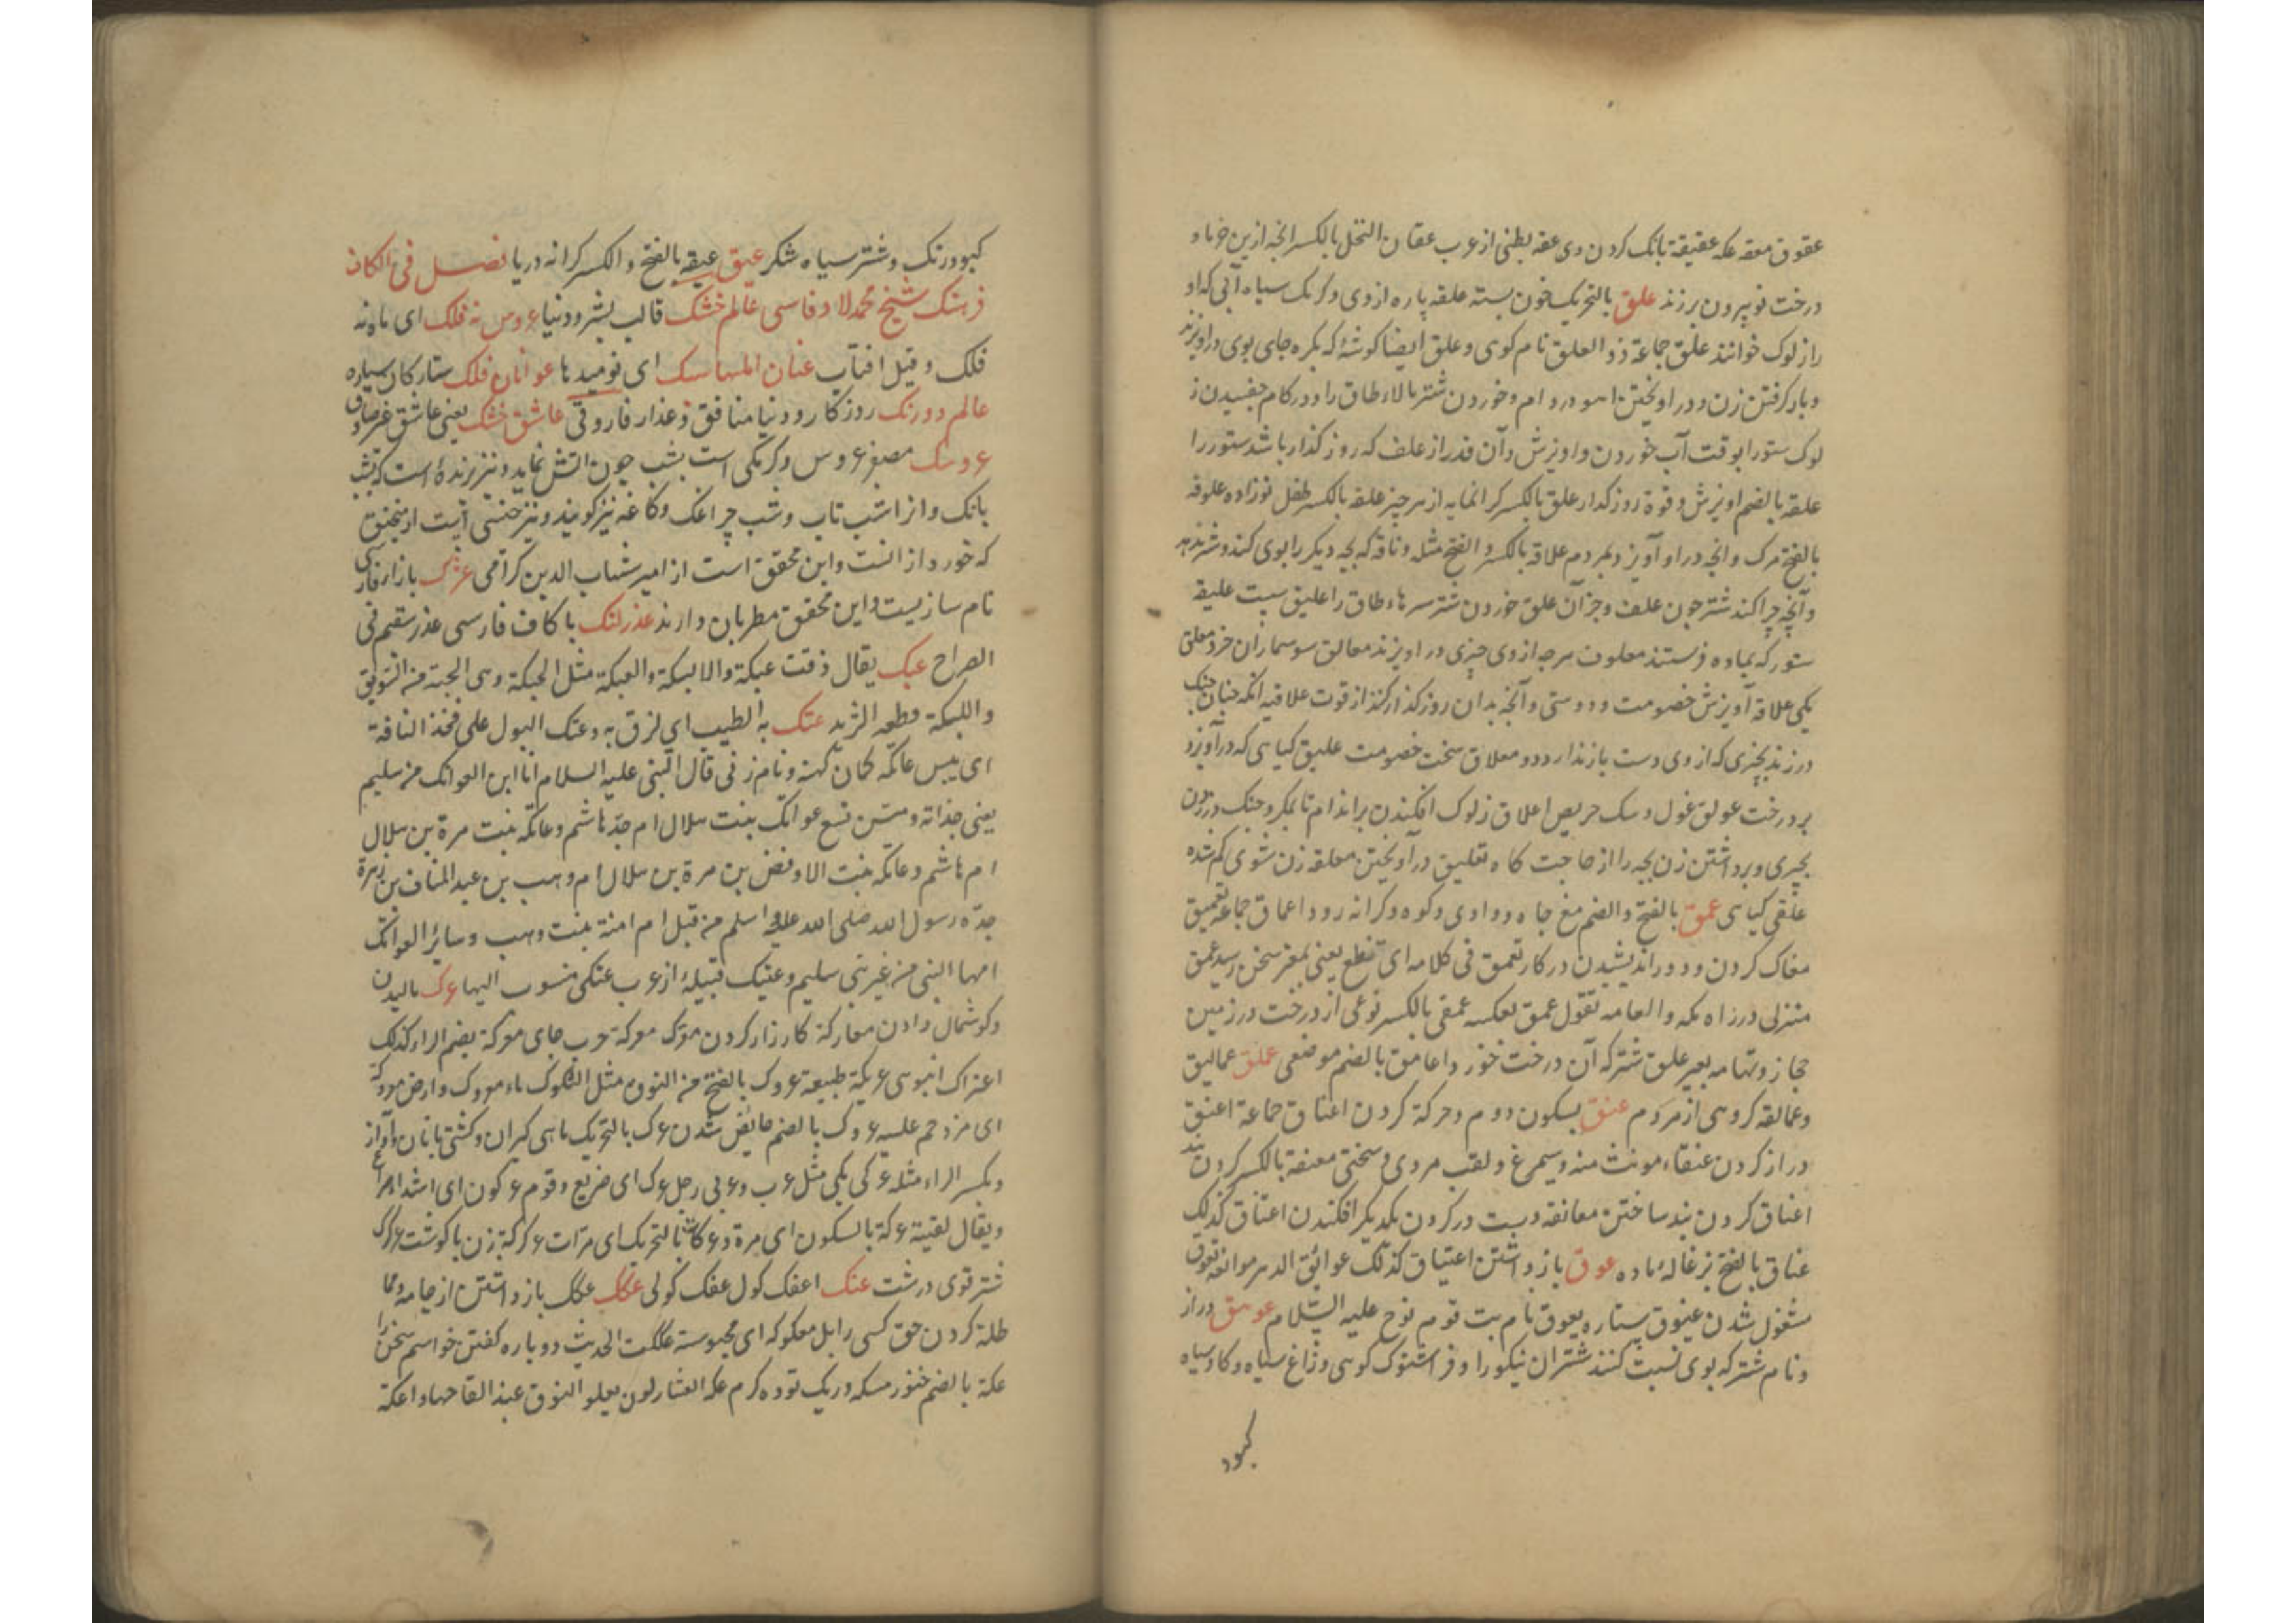 عقوق معقه عکه عقیقة بانک کردن وی عقه بطنی از عرب عقان النخل بالکسر انچه از بن خرما و
درخت نو بیرون برزند علق بالتحریک خون بسته علقه پاره از وی و کرمک سیاه آبی که او
را زلوک خوانند علق جماعة ذو العلق نام کوهی و علق ایضا کوشهٔ که بکره جای بوی دراویزند
و بار کرفتن زن و دراویختن آهو در دام و خوردن شتر بالاء طاق را و در کام چفسیدن ز
لوک ستور را بوقت آب خوردن و اویزش و آن قدر از علف که روز کذار باشد ستور را
علقه بالضم اویزش و قوة روز کذار علق بالکسر کرانمایه از هر چیز علقه بالکسر طفل نوزاده علوقه
بالفتح مرک و انچه دراو آویزد بمردم علاقه بالکسر و الفتح مثله و ناقه که بچه دیکر را بوی کند و شیر ندهد
و آنچه چرا کند شتر چون علف و جز آن علق خوردن شتر سرهاء طاق را علیق سبت علیقه
ستور که بماده فرستند معلوف هرچه از وی چیزی در اویزند معالق سوسماران خرد معلق
یکی علاقه آویزش خصومت و دوستی و آنچه بدان روز کذار کنند از قوت علاقیه آنکه چنان چنک
در زند بچیزی که از وی دست باز ندارد و معلاق سخت خصومت علیق کیاهی که درآویزد
بر درخت عولق غول و سک حریص اعلاق زلوک افکندن بر اندام تا بمکد و چنک در زدن
بچیزی و برداشتن زن بچه را از حاجت کاه تعلیق درآویختن معلقه زن شوی کم شده
علقی کیاهی عمق بالفتح والضم مغ چاه و وادی و کوه و کرانه رود اعماق جماعه تعمیق
مغاک کردن و دور اندیشیدن در کار تعمق فی کلامه ای تنطع یعنی بمغز سخن رسید عمق
منزلی در راه مکه و العامه تقول عمق لعکسه عمقی بالکسر نوعی از درخت در زمین
حجاز و تهامه بعیر علق شتر که آن درخت خورد و اعامق بالضم موضعی عملق عمالیق
و عمالقه کروهی از مردم عنق بسکون دوم و حرکة کردن اعناق جماعة اعنق
دراز کردن عنقاء مونث منه و سیمرغ و لقب مردی و سختی معنقة بالکسر کردن بند
اعناق کردن بند ساختن معانقه دست در کردن یکدیکر افکندن اعتناق کذلک
عناق بالفتح بزغالهٔ ماده عوق باز داشتن اعتیاق کذلک عوائق الدهر موانعه تعوق
مشغول شدن عیوق ستاره یعوق نام بت قوم نوح علیه السلام عوهق دراز
و نام شتر که بوی نسبت کنند شتران نیکو را و فراشتوک کوهی و زاغ سیاه و کاو سیاه
کبود
کبود رنک و شتر سیاه شکر عیق عیقه بالفتح و الکسر کرانه دریا فصل فی الکاف
فرهنک شیخ محمد لاد فارسی عالم خشک قالب بشر و دنیا عروس نه فلک ای ماه نه
فلک و قیل افتاب عنان المساسک ای نومیدها عوانان فلک ستارکان سیاره
عالم دو رنک روزکار و دنیا منافق و غدار فاروقی عاشق خشک یعنی عاشق غیر صادق
عروسک مصغر عروس و کرمکی است بشب چون اتش نماید و نیز پرنده است که بشب
بانک و انرا شب تاب و شب چراغک و کاغنه نیز کویند و نیز جنسی است از منجنیق
که خورد از انست و این محقق است از امیر شهاب الدین کرامی عژک بازار فارسی
نام سازیست و این محقق مطربان دارند عذر لنک با کاف فارسی عذر سقیم فی
الصراح عبک یقال ذقت عبکة و لا لبکة والعبکة مثل الحبکة وهی الحبة من السویق
واللبکة قطعه الثرید عتک به الطیب ای لزق به وعتک البول علی فخذ الناقة
ای یبس عاتکه کمان کهنه و نام زنی قال النبی علیه السلام انا ابن العواتک من سلیم
یعنی جداته وهن تسع عواتک بنت هلال ام جد هاشم وعاتکه بنت مرة بن هلال
ام هاشم وعاتکه بنت الاوقص بن مرة بن هلال ام وهب بن عبد المناف بن زهرة
جدّه رسول الله صلی الله علیه وسلم من قبل ام امنة بنت وهب وسائر العواتک
امهات النبی من غیر بنی سلیم وعتیک قبیلهٔ از عرب عتکی منسوب الیها عرک مالیدن
و کوشمال دادن معارکة کارزار کردن معرک معرکة حرب جای معرکة بضم الراء کذلک
اعتراک انبوهی عریکة طبیعة عروک بالفتح من النوق مثل الشکوک ماء معروک وارض معروکة
ای مزدحم علیه عروک بالضم حایض شدن عرک بالتحریک ماهی کیران و کشتی بانان و آواز
و بکسر الراء مثله عرکی یکی مثل عرب وعربی رجل عرک ای صریع وقوم عرکون ای اشداء صراع
ویقال لقیته عرکة بالسکون ای مرة وعرکات بالتحریک ای مرّات عرکرکة زن با کوشت عرکرک
شتر قوی درشت عفک اعفک کول عفک کولی عکک عکک باز داشتن از جامه و مما
طلة کردن حق کسی را ابل معکوکه ای محبوسة عککت الحدیث دوباره کفتن خواستم سخن را
عکة بالضم خنور مسکه و ریک توده کرم عکه العشار لون یعلو النوق عند القاحها و اعکة